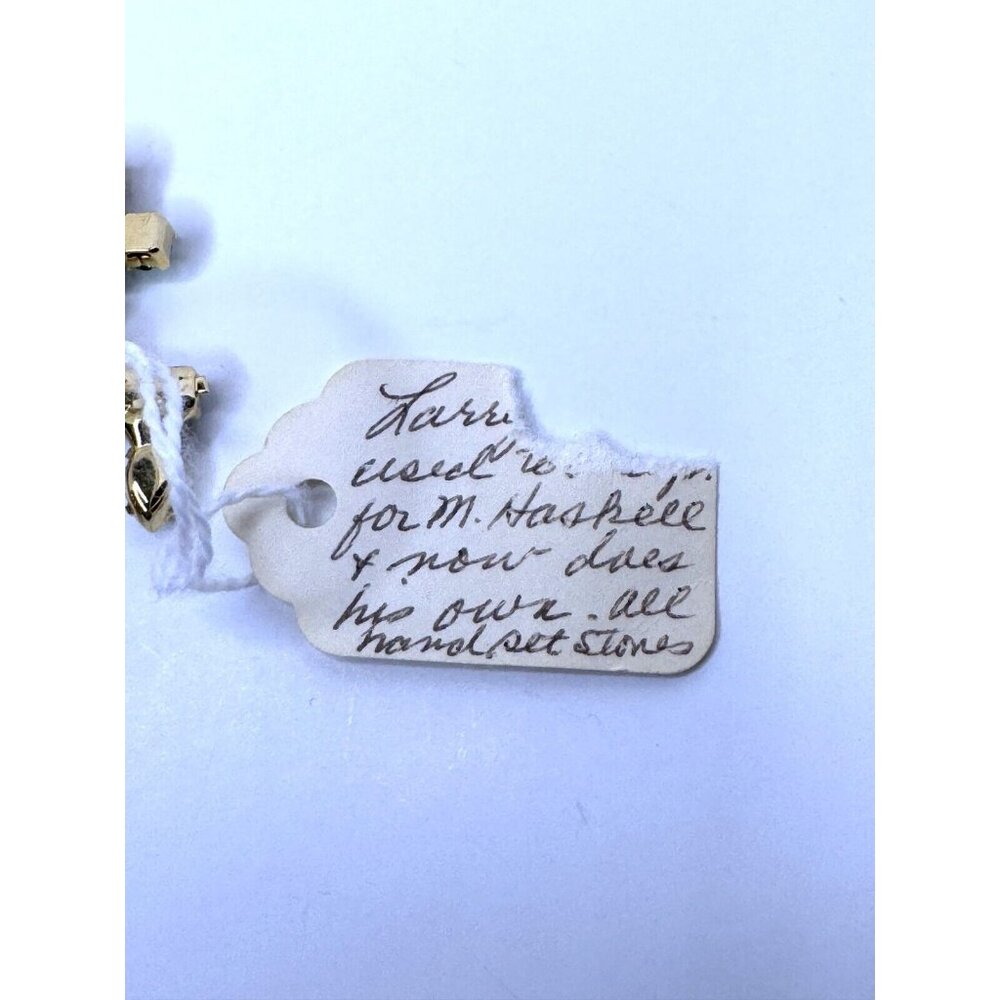 Larr
used
for M. Haskell
& now does
his own. all
hand set stones